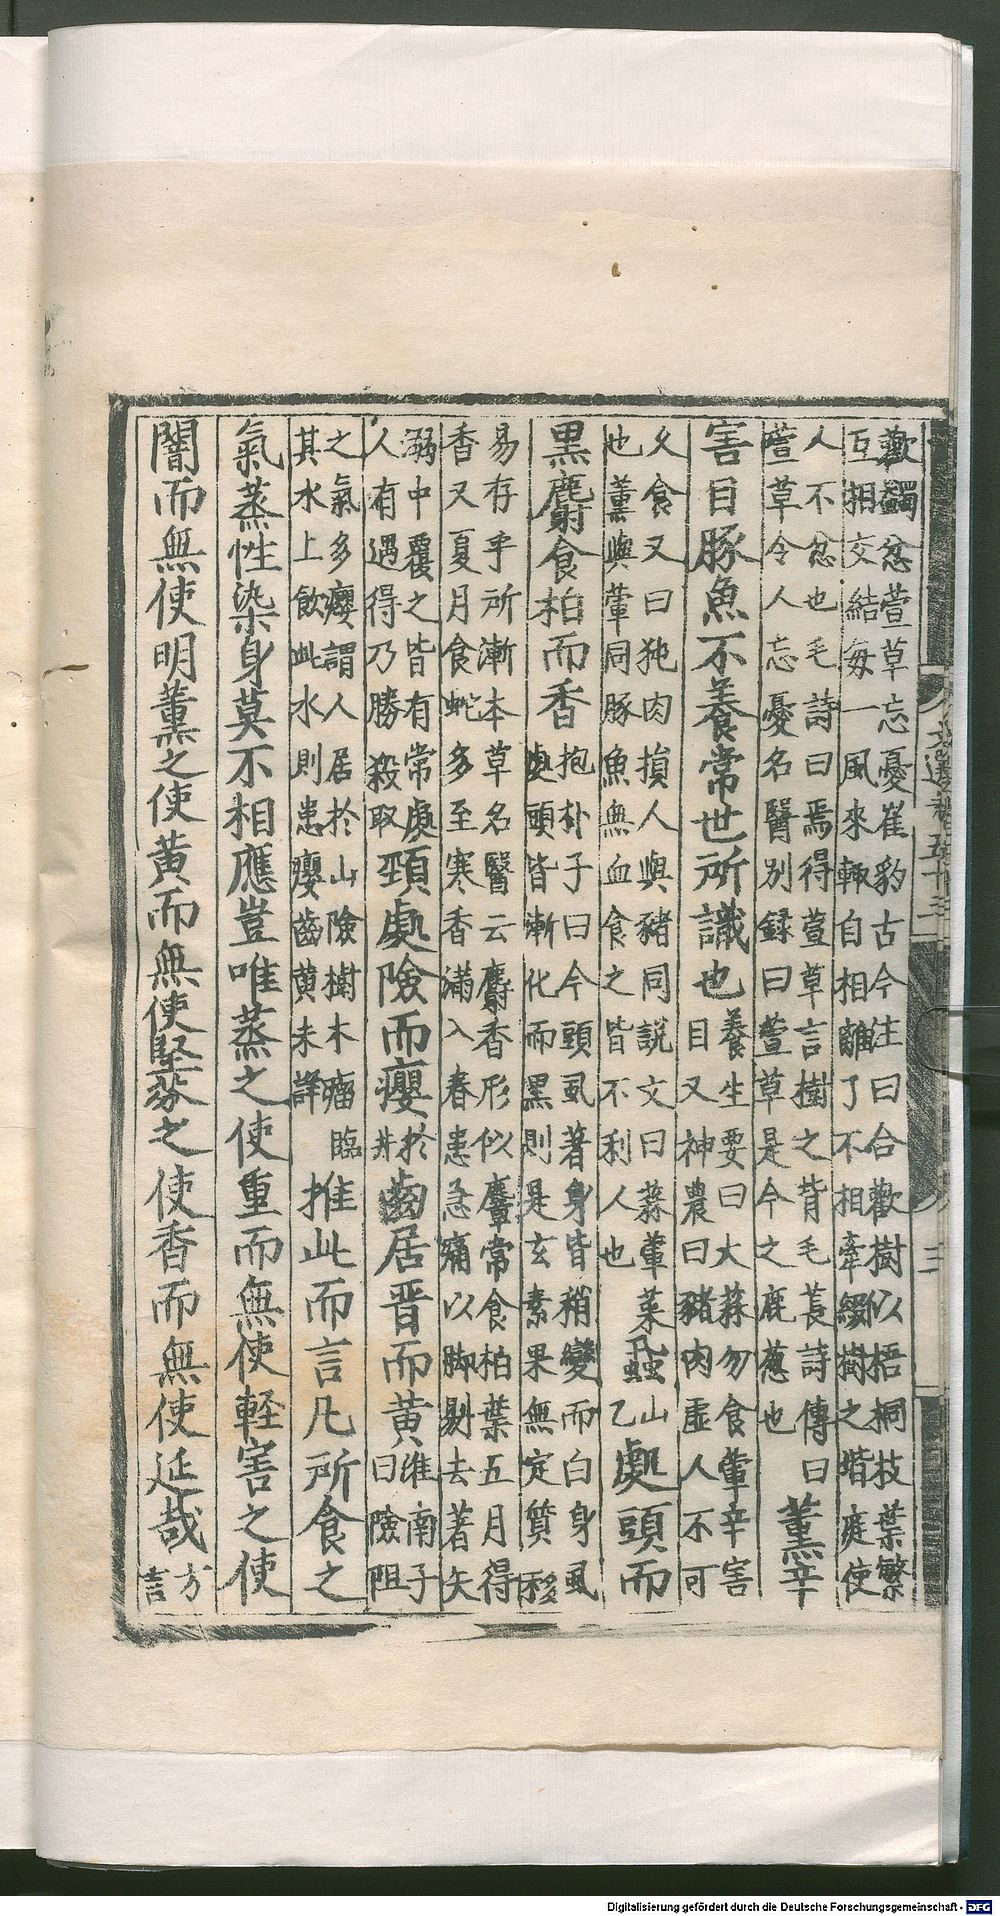 歡蠲忿萱草忘憂崔豹古今注曰合歡樹似梧桐枝葉繁
互相交結每一風來輒自相離了不相牽綴樹之堦庭使
人不忿也毛詩曰焉得萱草言樹之背毛萇詩傳曰
萱草令人忘憂名醫別録曰萱草是今之鹿葱也
薰辛
害目豚魚不養常世所識也
養生要曰大蒜勿食葷辛害
目又神農曰豬肉虛人不可
乆食又曰㹠肉損人與豬同説文曰蒜葷菜
也薰與葷同豚魚無血食之皆不利人也
虱
蝨山
乙
處頭而
黒麝食柏而香
抱朴子曰今頭虱著身皆稍變而白身虱
處頭皆漸化而黑則是玄素果無定質移
易存乎所漸本草名醫云麝香形似麞常食柏葉五月得
香又夏月食蛇多至寒香滿入春患急痛以脚剔去著矢
溺中覆之皆有常處
人有遇得乃勝殺取
頸處險而癭
於
井
齒居晉而黄
淮南子
曰險阻
之氣多癭謂人居於山險樹木瘤臨
其水上飲此水則患癭齒黄未詳
推此而言凡所食之
氣蒸性染身莫不相應豈唯蒸之使重而無使輕害之使
闇而無使明薰之使黄而無使堅芬之使香而無使延哉
方
言
文選卷五十三
三
Digitalisierung gefördert durch die Deutsche Forschungsgemeinschaft - DFG